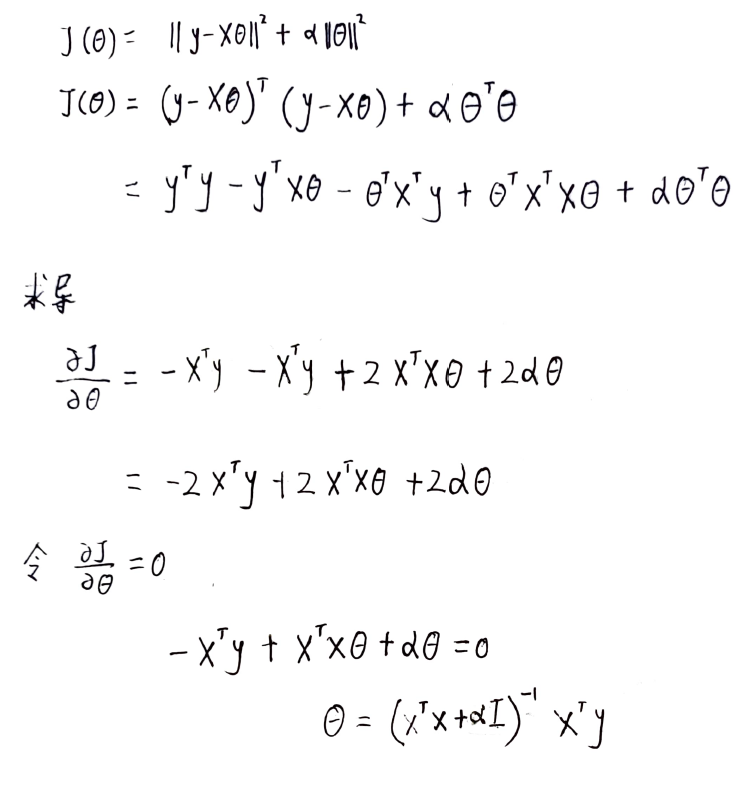 J(θ) = ‖y-Xθ‖² + α‖θ‖²
J(θ) = (y-Xθ)ᵀ (y-Xθ) + αθᵀθ
= yᵀy - yᵀXθ - θᵀXᵀy + θᵀXᵀXθ + αθᵀθ
求导
∂J/∂θ = -Xᵀy - Xᵀy + 2XᵀXθ + 2αθ
= -2Xᵀy + 2XᵀXθ + 2αθ
令 ∂J/∂θ = 0
-Xᵀy + XᵀXθ + αθ = 0
θ = (XᵀX + αI)⁻¹ Xᵀy